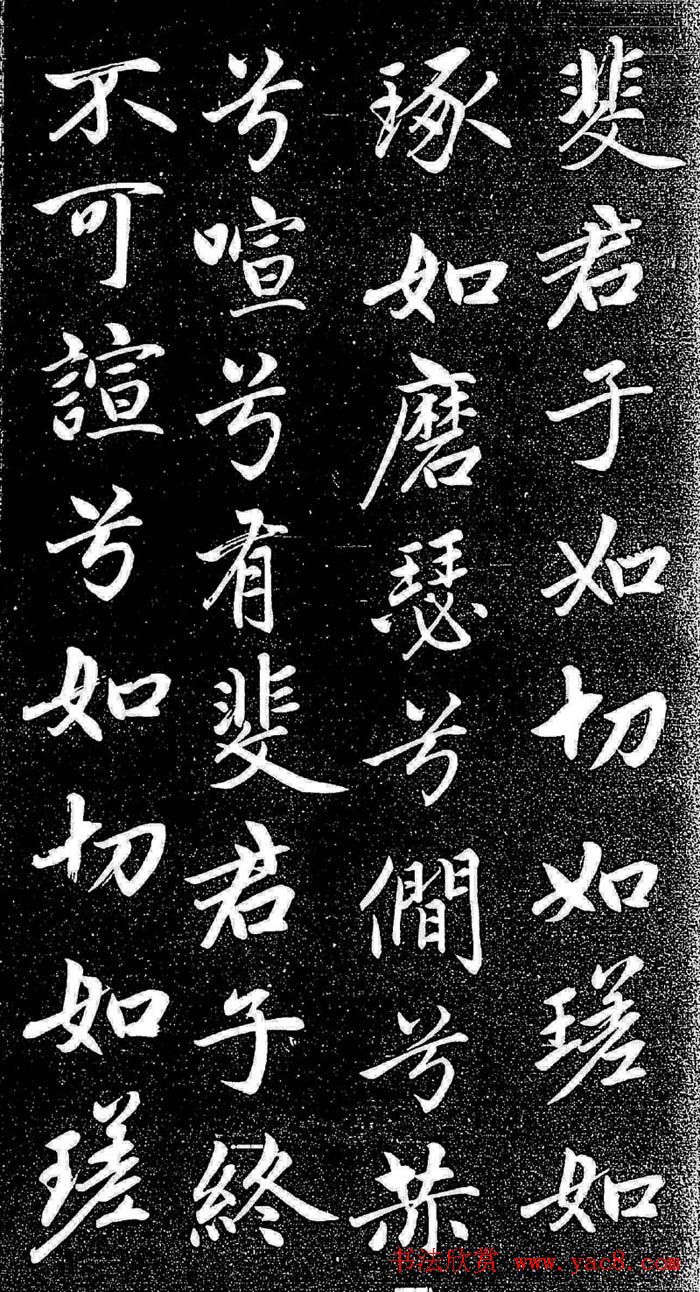 斐君子如切如瑳如
琢如磨瑟兮僴兮赫
兮喧兮有斐君子終
不可諠兮如切如瑳
书法欣赏 www.yac8.com